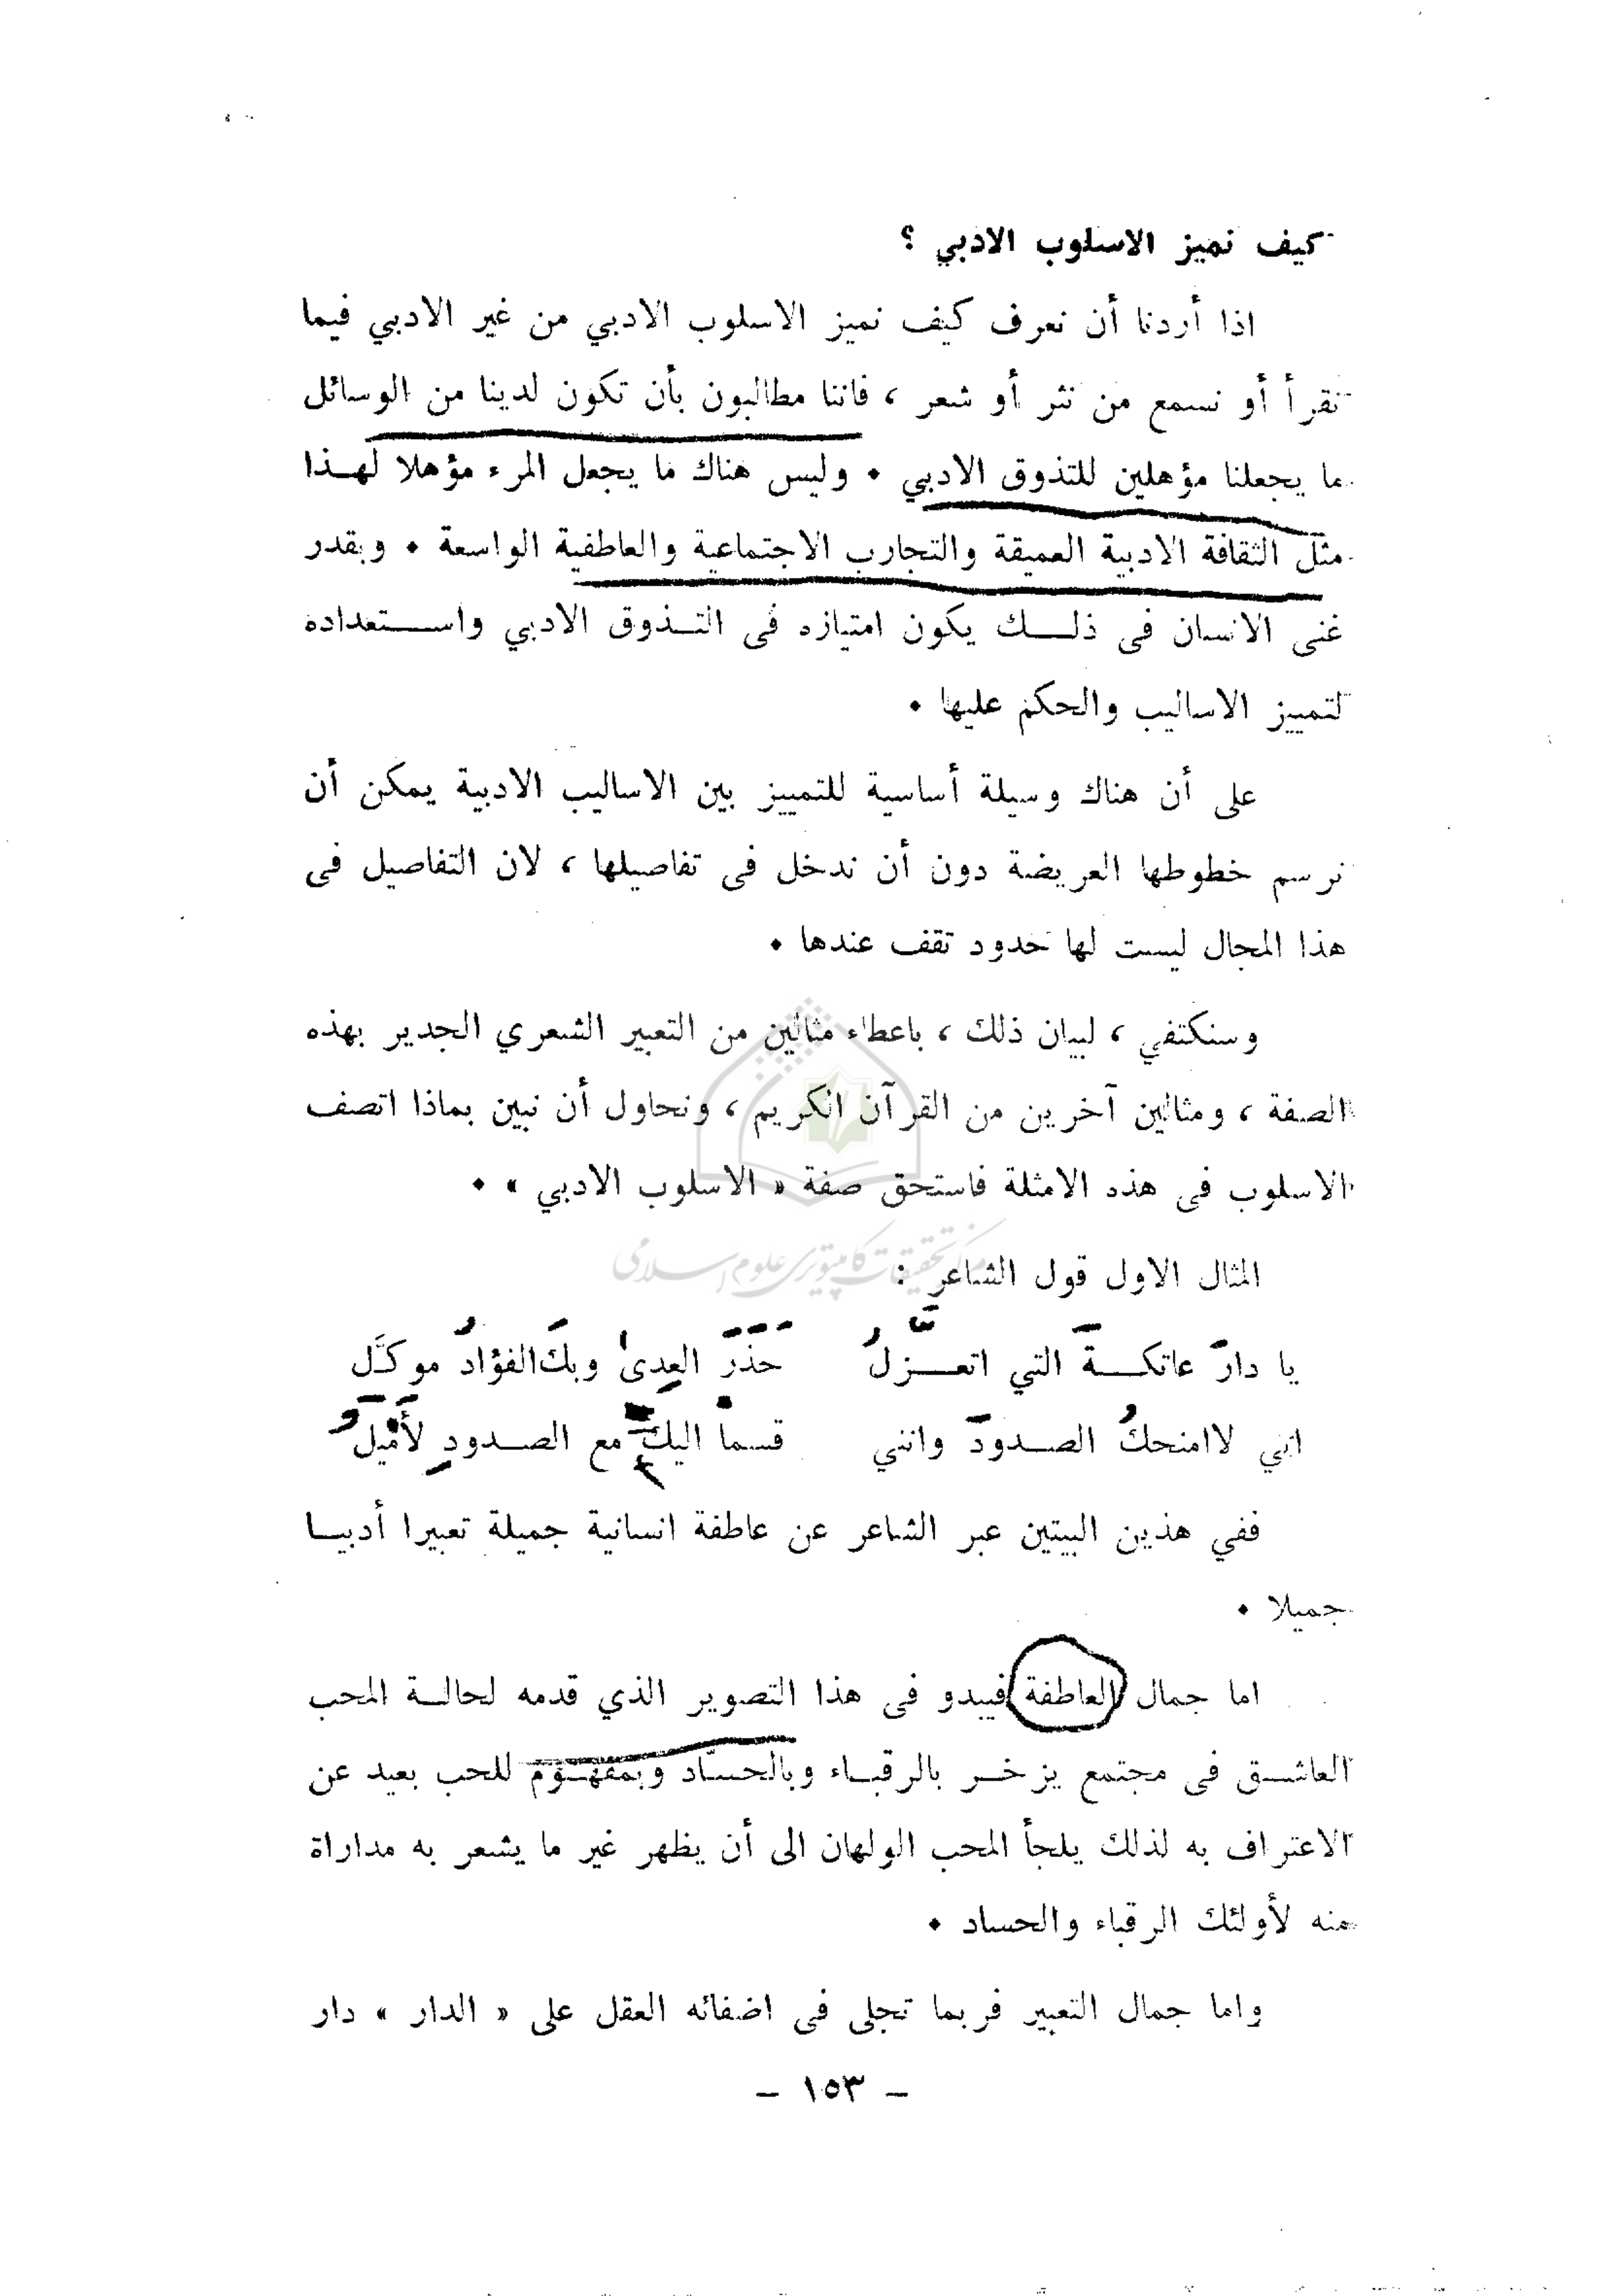 كيف نميز الاسلوب الادبي ؟
اذا أردنا أن نعرف كيف نميز الاسلوب الادبي من غير الادبي فيما
نقرأ أو نسمع من نثر أو شعر ، فاننا مطالبون بأن تكون لدينا من الوسائل
ما يجعلنا مؤهلين للتذوق الادبي • وليس هناك ما يجعل المرء مؤهلا لهـذا
مثل الثقافة الادبية العميقة والتجارب الاجتماعية والعاطفية الواسعة • وبقدر
غنى الانسان في ذلـــك يكون امتيازه في التــذوق الادبي واســـتعداده
لتمييز الاساليب والحكم عليها •
على أن هناك وسيلة أساسية للتمييز بين الاساليب الادبية يمكن أن
نرسم خطوطها العريضة دون أن ندخل في تفاصيلها ، لان التفاصيل في
هذا المجال ليست لها حدود تقف عندها •
وسنكتفي ، لبيان ذلك ، باعطاء مثالين من التعبير الشعري الجدير بهذه
الصفة ، ومثالين آخرين من القرآن الكريم ، ونحاول أن نبين بماذا اتصف
الاسلوب في هذه الامثلة فاستحق صفة « الاسلوب الادبي » •
مركز تحقيقات كامپيوتری علوم اسلامی
المثال الاول قول الشاعر :
يا دارَ عاتكـــةَ التي اتعـــزَّلُ حَذَرَ العِدىٰ وبكَ الفؤادُ موكَّل
انني لاامنحكُ الصــدودَ وانني قسماً اليكِ مع الصــدودِ لأَمْيَلُ
ففي هذين البيتين عبر الشاعر عن عاطفة انسانية جميلة تعبيرا أدبيــا
جميلا •
اما جمال العاطفة فيبدو في هذا التصوير الذي قدمه لحالــة المحب
العاشــق في مجتمع يزخــر بالرقبــاء وبالحسّاد وبمفهــوم للحب بعيد عن
الاعتراف به لذلك يلجأ المحب الولهان الى أن يظهر غير ما يشعر به مداراة
منه لأولئك الرقباء والحساد •
واما جمال التعبير فربما تجلى في اضفائه العقل على « الدار » دار
– ١٥٣ –